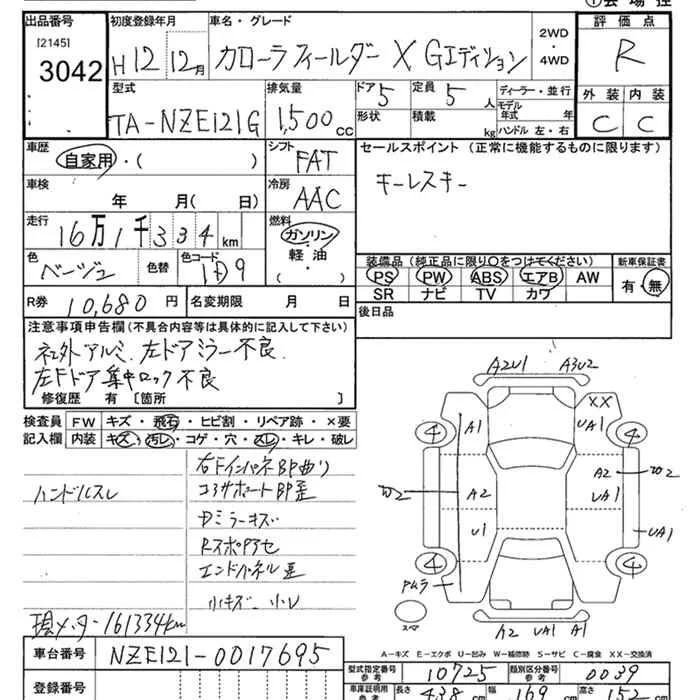 ①会場控
出品番号 初度登録年月 車名・グレード 評価点
[2145]
3042
H12 12月 カローラフィールダー X Gエディション
2WD
・
4WD
R
型式 排気量 ドア 定員 ディーラー・並行 外装 内装
TA-NZE121G 1,500cc 5 5人
形状 積載 kg
モデル年式 年
ハンドル 左・右
C C
車歴 シフト セールスポイント (正常に機能するものに限ります)
自家用・( ) FAT
キーレスキー
車検 冷房
年 月( 日) AAC
走行 燃料
16万1千334km ガソリン・軽油( )
色 色替 色コード
ベージュ 4D9
装備品(純正品に限り〇をつけてください) 新車保証書
PS PW ABS エアB AW
SR ナビ TV カワ
有・無
R券 10,680円 名変期限 月 日
後日品
注意事項申告欄(不具合内容等は具体的に記入して下さい)
社外アルミ 左ドアミラー不良
左Fドア集中ロック不良
修復歴 有〔箇所 〕
検査員記入欄
FW キズ・飛石・ヒビ割・リペア跡・×要
内装 キズ・汚レ・コゲ・穴・スレ・キレ・破レ
ハンドルスレ
右FインパネBP曲り
コアサポートBP歪
エンドパネル歪
小キズ 小凹
現メーター161334km
A2U1 A3U2
XX
A1 UA1
4 4
W2 A2 UA1 A2 W2
U1 UA1
4 4
A2 UA1 A1
A-キズ E-エクボ U-凹み W-補修跡 S-サビ C-腐食 XX-交換済
車台番号 NZE121-0017695
登録番号
型式指定番号 参考 10725 類別区分番号 参考 0039
車庫証明用 参考 長さ 438cm 幅 169cm 高さ 152cm